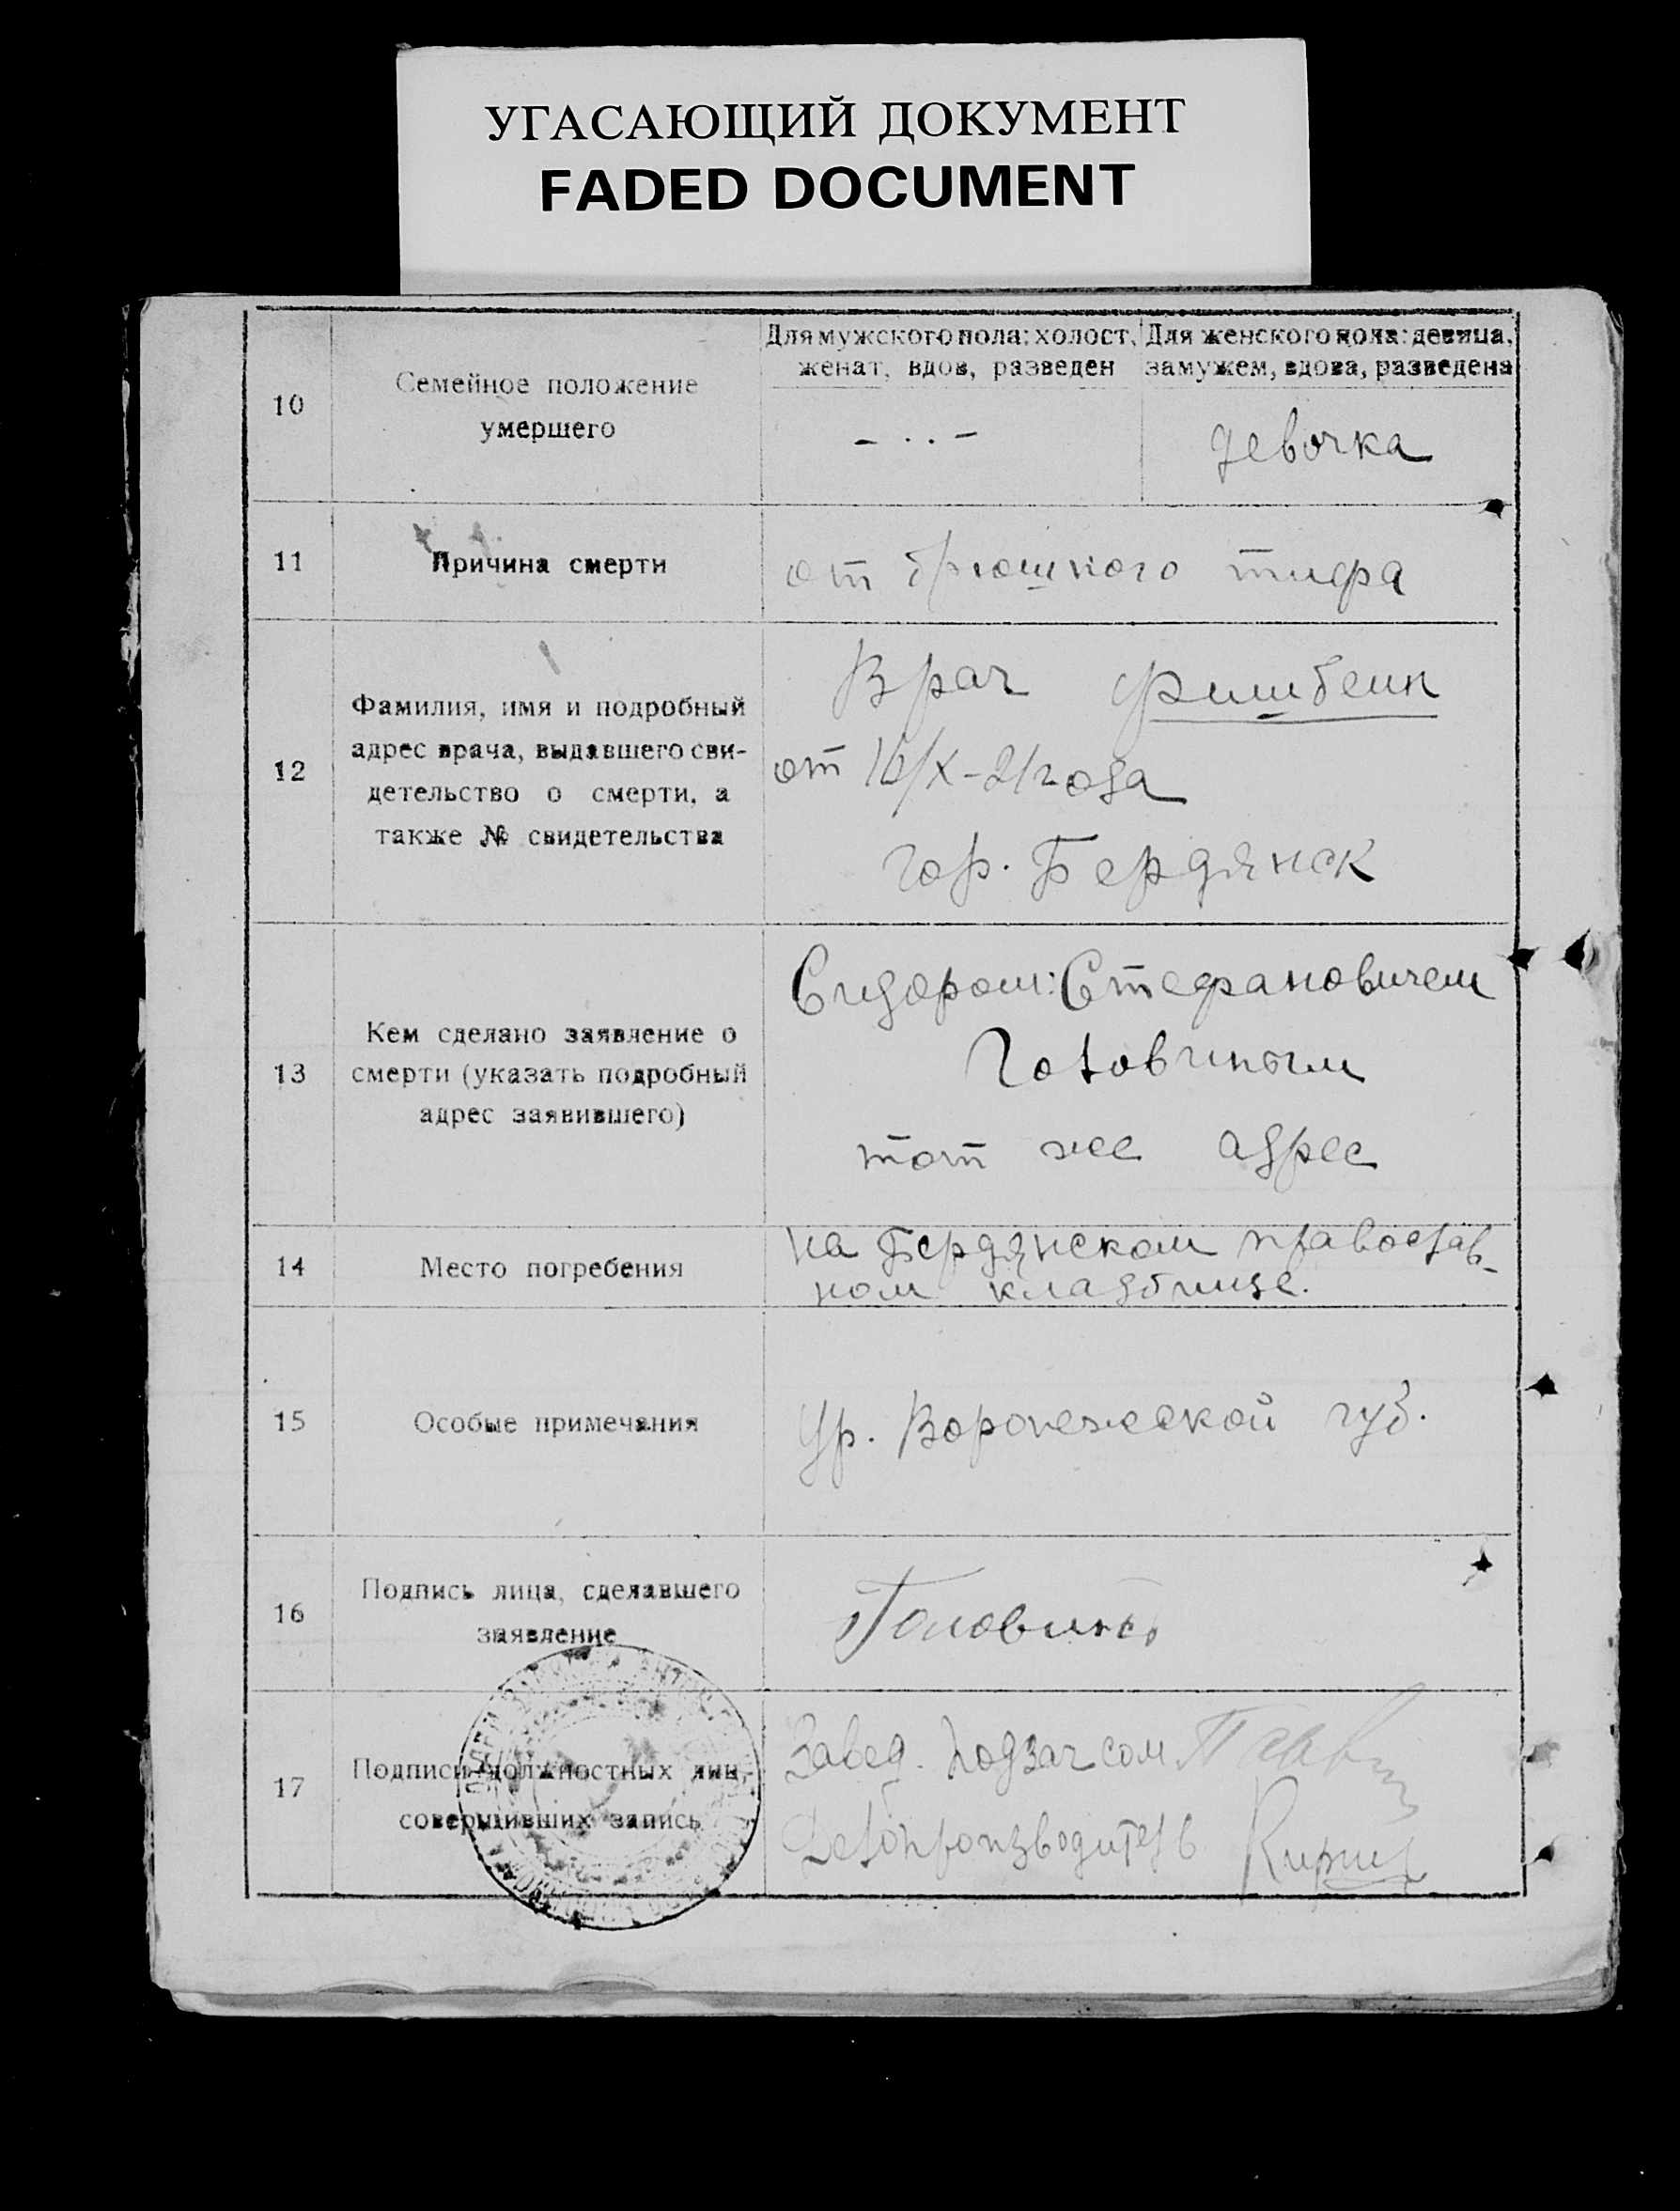 УГАСАЮЩИЙ ДОКУМЕНТ
FADED DOCUMENT
10
Семейное положение
умершего
Для мужского пола: холост,
женат, вдов, разведен
Для женского пола: девица,
замужем, вдова, разведена
- . . -
девочка
11
Причина смерти
от брюшного тифа
12
Фамилия, имя и подробный
адрес врача, выдавшего сви-
детельство о смерти, а
также № свидетельства
Врач Фишбейн
от 16/X-21 года
гор. Бердянск
13
Кем сделано заявление о
смерти (указать подробный
адрес заявившего)
Сидором: Стефановичем
Головиным
тот же адрес
14
Место погребения
на Бердянском православ-
ном кладбище.
15
Особые примечания
Ур. Воронежской губ.
16
Подпись лица, сделавшего
заявление
Головинъ
17
Подписи должностных лиц,
совершивших запись
Завед. подзагсом
Делопроизводитель